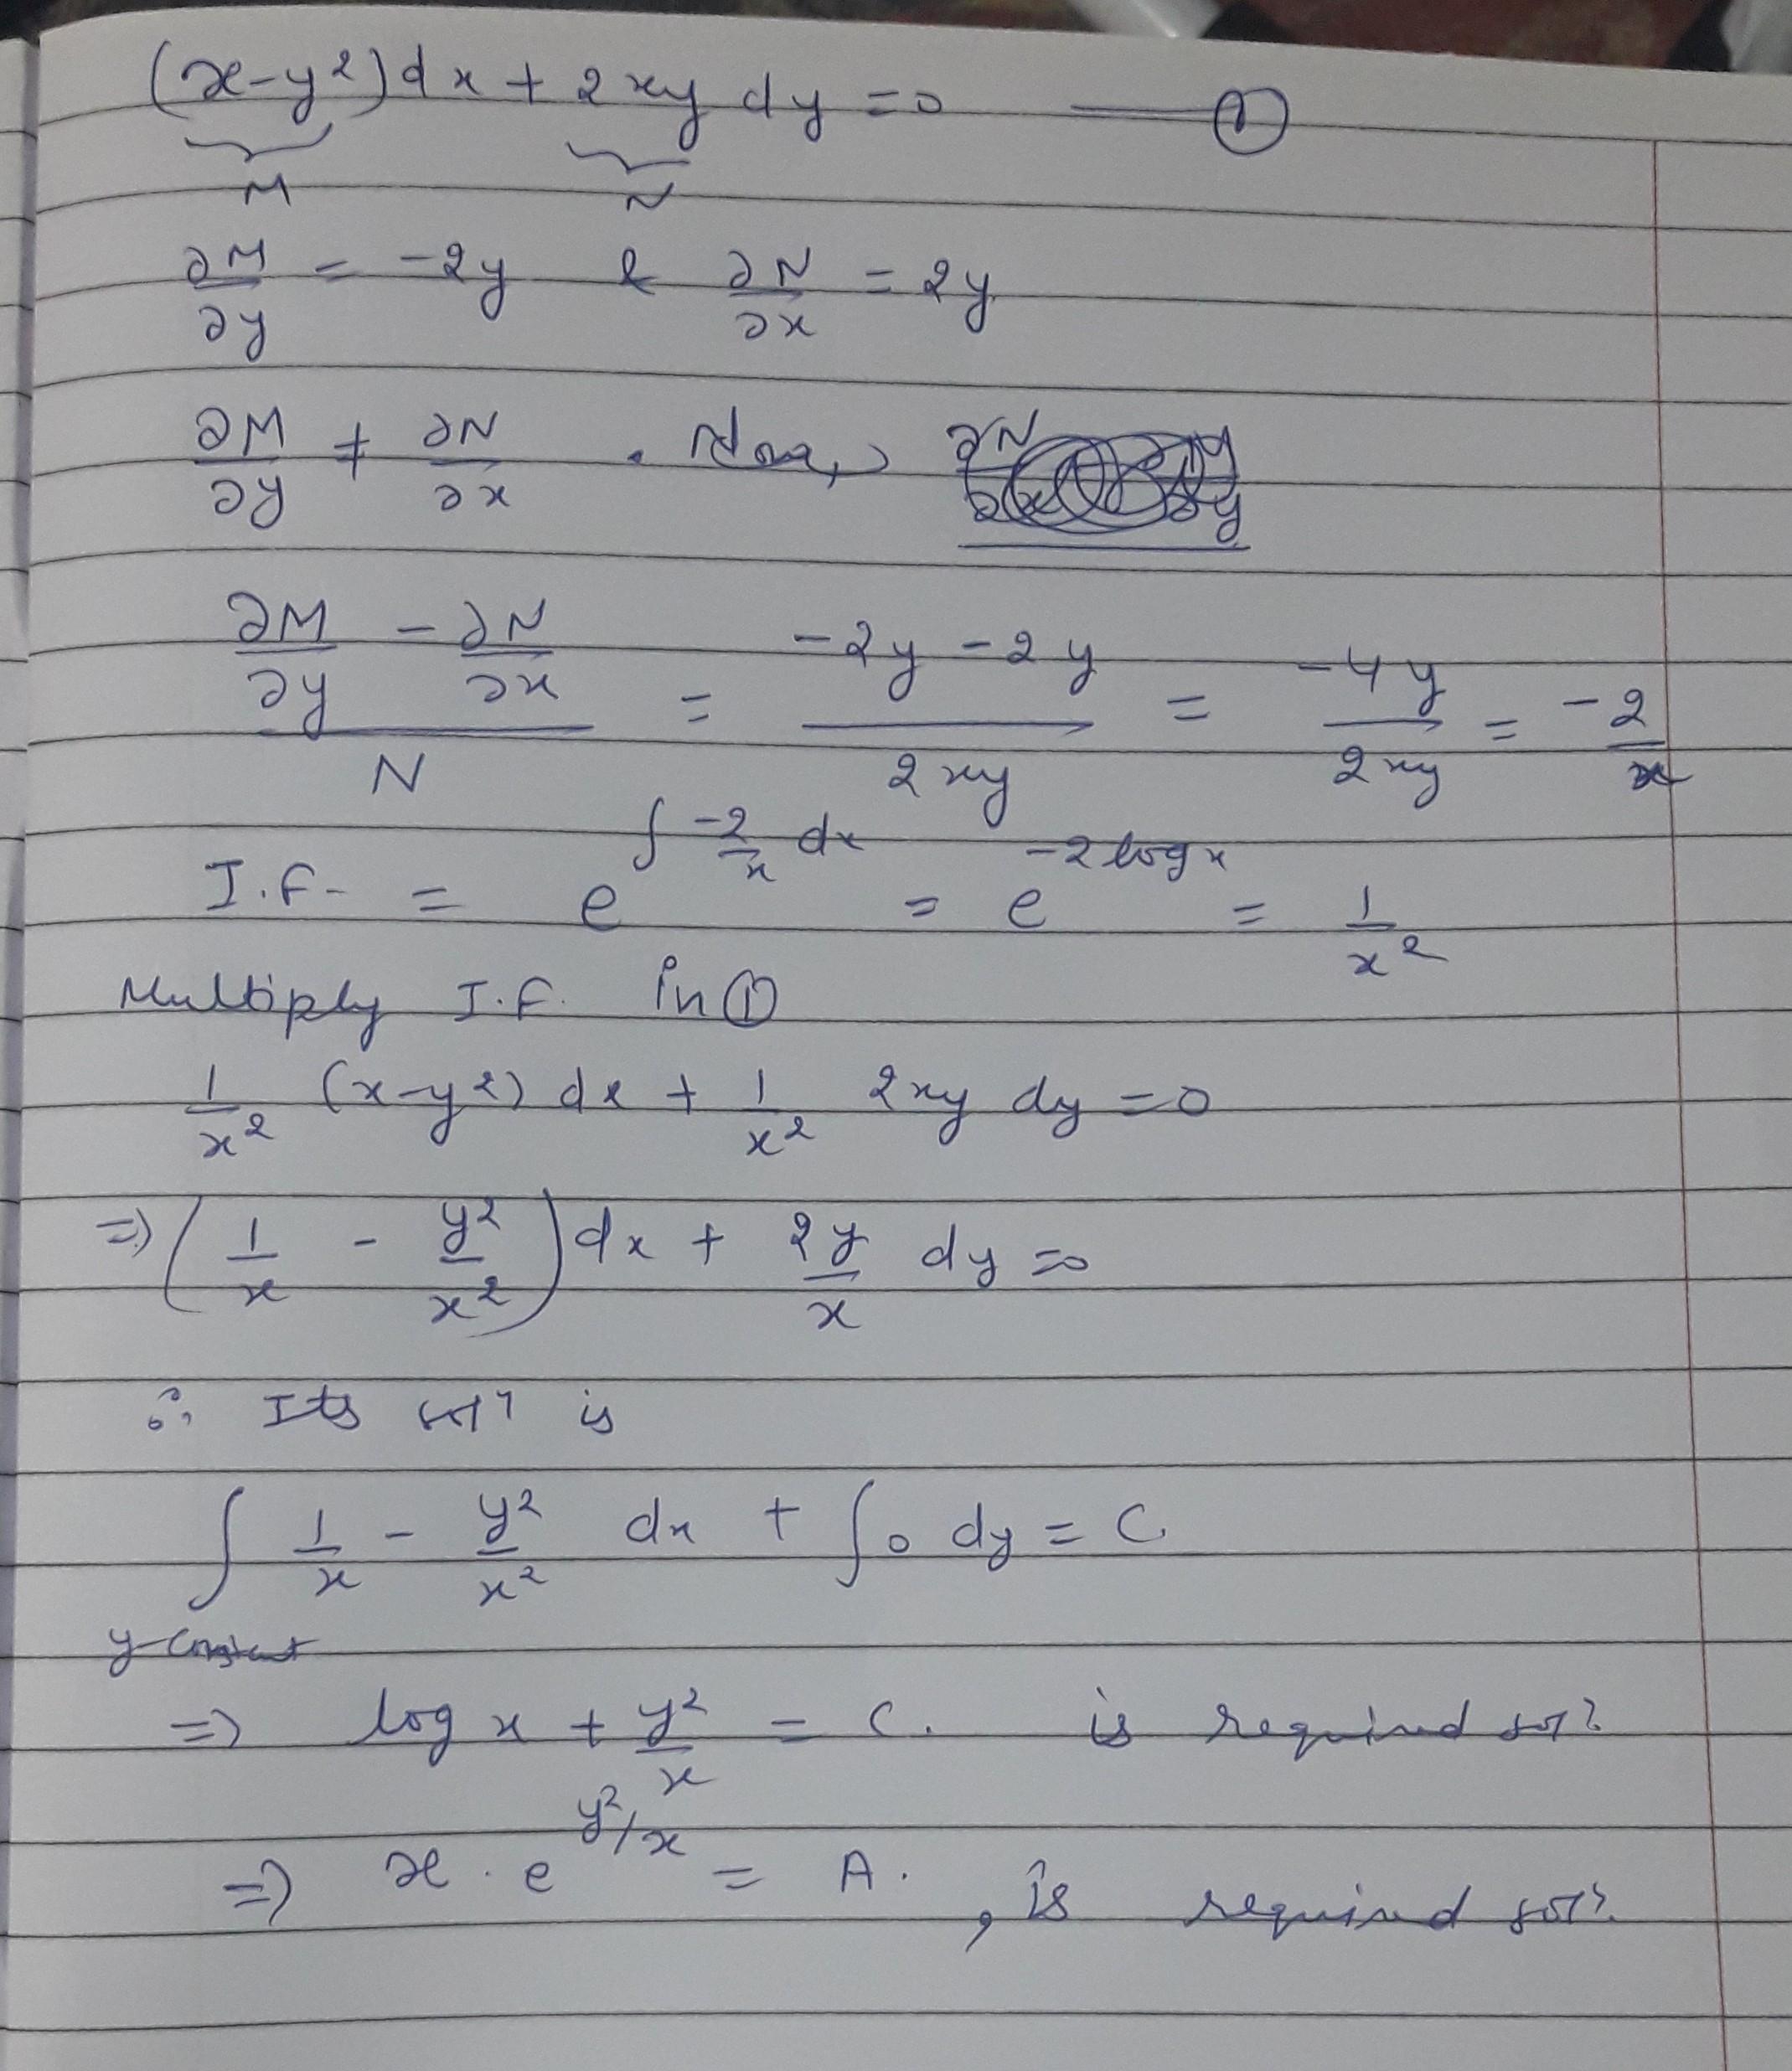 (x-y²)dx + 2xy dy = 0 —— ①
M N
∂M/∂y = -2y & ∂N/∂x = 2y
∂M/∂y ≠ ∂N/∂x . Now,
(∂M/∂y - ∂N/∂x)/N = (-2y-2y)/2xy = -4y/2xy = -2/x
I.F. = e^(∫ -2/x dx) = e^(-2 log x) = 1/x²
Multiply I.F. in ①
1/x² (x-y²) dx + 1/x² 2xy dy = 0
⇒ (1/x - y²/x²) dx + 2y/x dy = 0
∴ Its solⁿ is
∫ 1/x - y²/x² dx + ∫ 0 dy = C
y-constant
⇒ log x + y²/x = C. is required solⁿ
⇒ x · e^(y²/x) = A. , is required solⁿ.